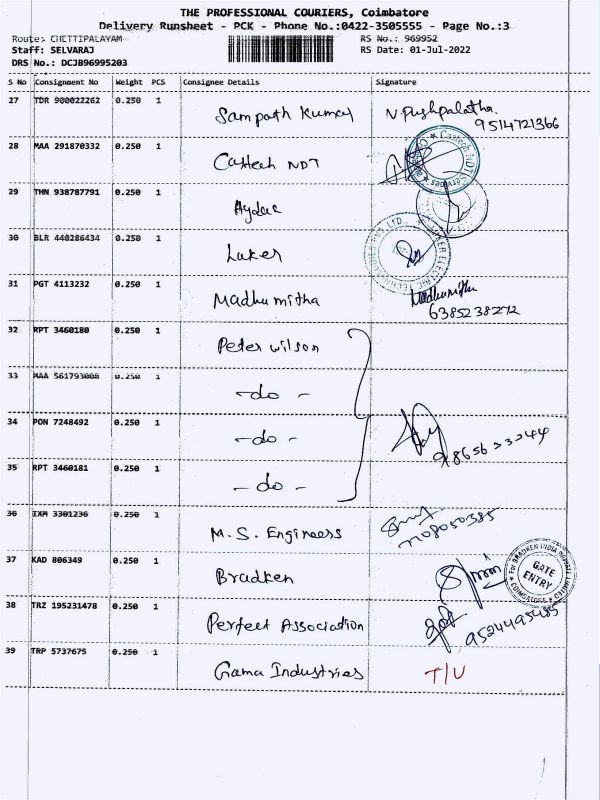 THE PROFESSIONAL COURIERS, Coimbatore
Delivery Runsheet - PCK - Phone No.:0422-3505555 - Page No.:3
Route: CHETTIPALAYAM RS No.: 969952
Staff: SELVARAJ RS Date: 01-Jul-2022
DRS No.: DCJB96995203
S No Consignment No Weight PCS Consignee Details Signature
27 TDR 900022262 0.250 1 Sampath Kumar N.Pushpalatha.
9514721366
28 MAA 291870332 0.250 1 Castech NDT
Castech NDT Services
29 THN 938787791 0.250 1 Hydac
30 BLR 440286434 0.250 1 Laker
31 PGT 4113232 0.250 1 Madhumitha Madhumitha
6385238272
32 RPT 3460180 0.250 1 Peter Wilson
33 MAA 561793008 0.250 1 - do -
34 PON 7248492 0.250 1 - do -
35 RPT 3460181 0.250 1 - do -
36 IXM 3301236 0.250 1 M.S. Engineers
37 KAD 806349 0.250 1 Bradken
For BRADKEN INDIA PRIVATE LIMITED
GATE
ENTRY
COIMBATORE
38 TRZ 195231478 0.250 1 Perfect Association
39 TRP 5737675 0.250 1 Gama Industries T/U